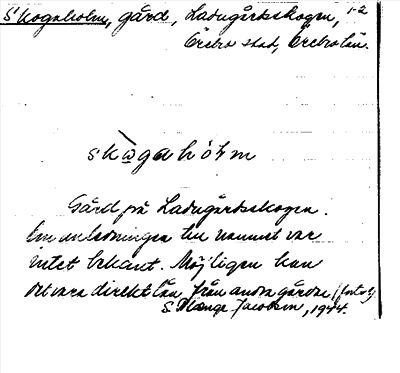 Skogaholm, gård, Ladugårdsskogen, 1-2
Örebro stad, Örebro län.
skògahólm
Gård på Ladugårdsskogen.
Om anledningen till namnet var
intet bekant. Möjligen kan
det vara direkt lån från andra gårdar (forts.)
S. Jacobson, 1944.